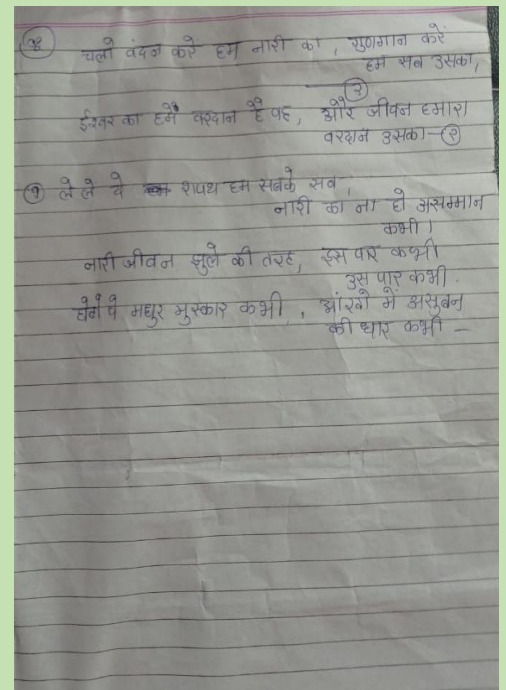 चलो वंदन करें हम नारी का, गुणगान करें
हम सब उसका,
— २
ईश्वर का हमें वरदान है वह, और जीवन हमारा
वरदान उसका — २
१ ले ले ये शपथ हम सबके सब,
नारी का ना हो असम्मान
कभी।
नारी जीवन झुले की तरह, इस पार कभी
उस पार कभी.
होठों पे मधुर मुस्कार कभी, आंखों में असुवन
की धार कभी –